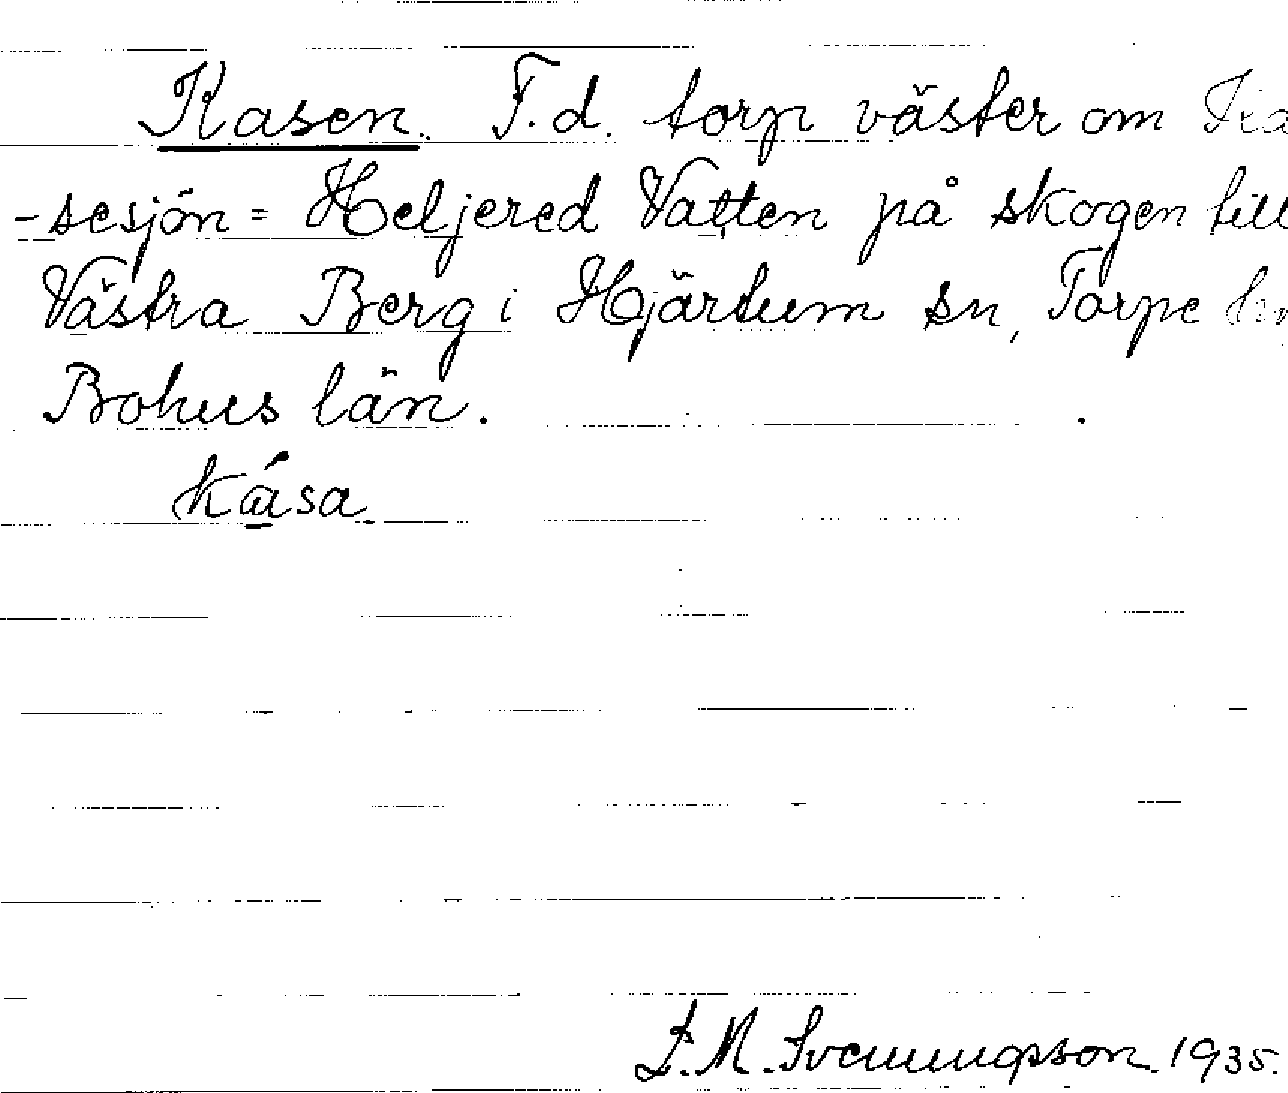 Kasen. F.d. torp väster om
-sesjön = Heljered Vatten på skogen till
Västra Berg i Hjärtum sn, Torpe
Bohus län.
kása
F.M. Svenungsson 1935.